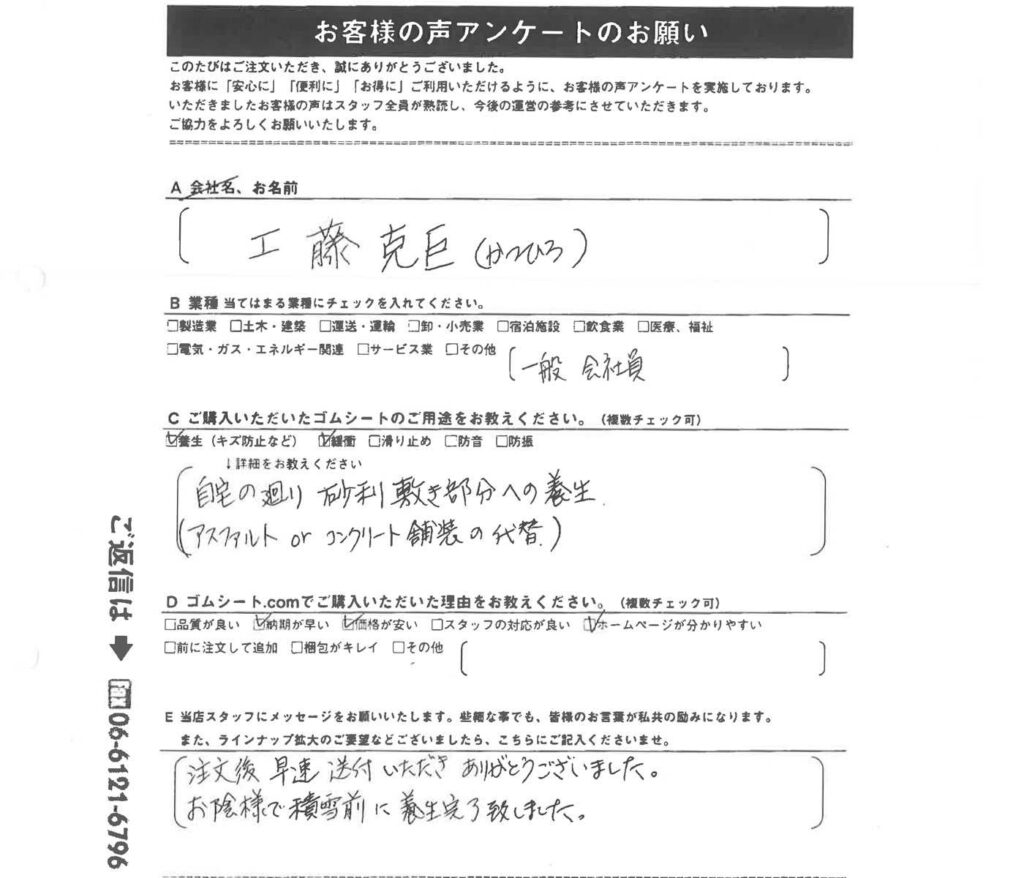 お客様の声アンケートのお願い
このたびはご注文いただき、誠にありがとうございました。
お客様に「安心に」「便利に」「お得に」ご利用いただけるように、お客様の声アンケートを実施しております。
いただきましたお客様の声はスタッフ全員が熟読し、今後の運営の参考にさせていただきます。
ご協力をよろしくお願いいたします。
A 会社名、お名前
工藤克巨(かつひろ)
B 業種 当てはまる業種にチェックを入れてください。
□製造業 □土木・建築 □運送・運輸 □卸・小売業 □宿泊施設 □飲食業 □医療、福祉
□電気・ガス・エネルギー関連 □サービス業 □その他
一般 会社員
C ご購入いただいたゴムシートのご用途をお教えください。(複数チェック可)
☑養生(キズ防止など) ☑緩衝 □滑り止め □防音 □防振
↓詳細をお教えください
自宅の廻り 砂利敷き部分への養生.
(アスファルト or コンクリート舗装の代替.)
D ゴムシート.comでご購入いただいた理由をお教えください。(複数チェック可)
□品質が良い ☑納期が早い ☑価格が安い □スタッフの対応が良い ☑ホームページが分かりやすい
□前に注文して追加 □梱包がキレイ □その他
E 当店スタッフにメッセージをお願いいたします。些細な事でも、皆様のお言葉が私共の励みになります。
また、ラインナップ拡大のご要望などございましたら、こちらにご記入くださいませ。
注文後 早速 送付いただき ありがとうございました。
お陰様で積雪前に養生完了致しました。
ご返信は➡FAX06-6121-6796